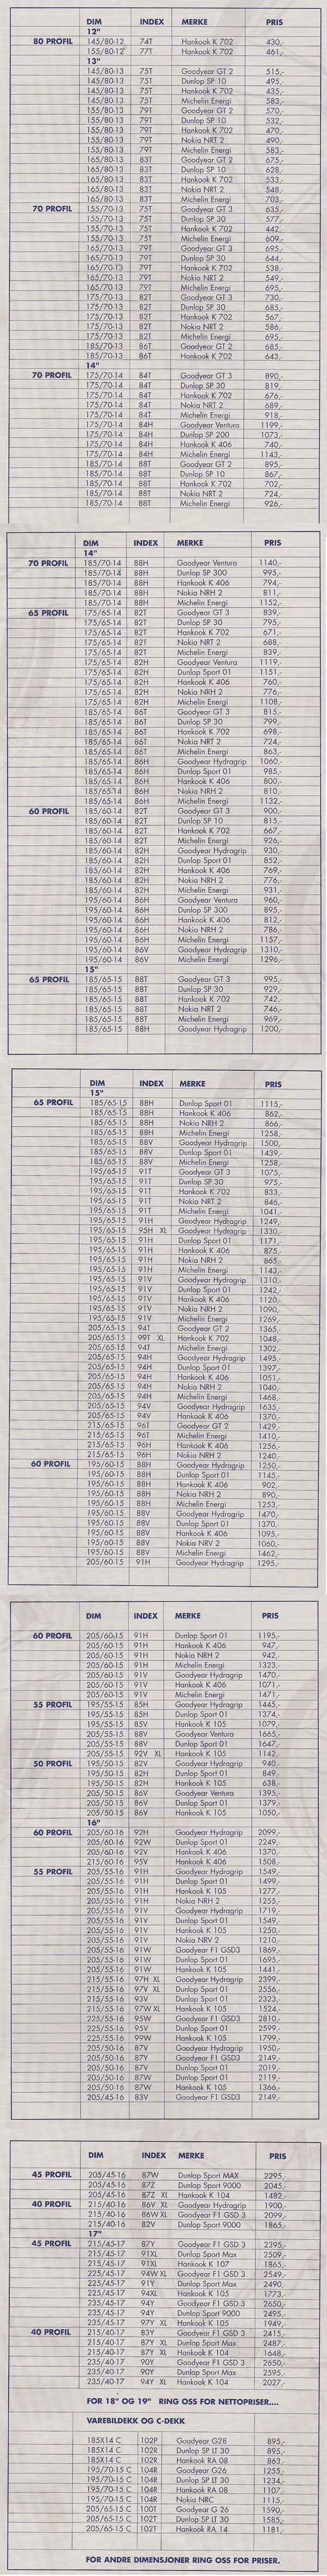 DIM INDEX MERKE PRIS
12"
80 PROFIL 145/80-12 74T Hankook K 702 430,-
155/80-12 77T Hankook K 702 461,-
13"
145/80-13 75T Goodyear GT 2 515,-
145/80-13 75T Dunlop SP 10 495,-
145/80-13 75T Hankook K 702 435,-
145/80-13 75T Michelin Energi 583,-
155/80-13 79T Goodyear GT 2 570,-
155/80-13 79T Dunlop SP 10 532,-
155/80-13 79T Hankook K 702 470,-
155/80-13 79T Nokia NRT 2 490,-
155/80-13 79T Michelin Energi 583,-
165/80-13 83T Goodyear GT 2 675,-
165/80-13 83T Dunlop SP 10 628,-
165/80-13 83T Hankook K 702 533,-
165/80-13 83T Nokia NRT 2 548,-
165/80-13 83T Michelin Energi 703,-
70 PROFIL 155/70-13 75T Goodyear GT 3 635,-
155/70-13 75T Dunlop SP 30 577,-
155/70-13 75T Hankook K 702 442,-
155/70-13 75T Michelin Energi 609,-
165/70-13 79T Goodyear GT 3 695,-
165/70-13 79T Dunlop SP 30 644,-
165/70-13 79T Hankook K 702 538,-
165/70-13 79T Nokia NRT 2 549,-
165/70-13 79T Michelin Energi 695,-
175/70-13 82T Goodyear GT 3 730,-
175/70-13 82T Dunlop SP 30 685,-
175/70-13 82T Hankook K 702 567,-
175/70-13 82T Nokia NRT 2 586,-
175/70-13 82T Michelin Energi 695,-
185/70-13 86T Goodyear GT 2 685,-
185/70-13 86T Hankook K 702 643,-
14"
70 PROFIL 175/70-14 84T Goodyear GT 3 890,-
175/70-14 84T Dunlop SP 30 819,-
175/70-14 84T Hankook K 702 676,-
175/70-14 84T Nokia NRT 2 689,-
175/70-14 84T Michelin Energi 918,-
175/70-14 84H Goodyear Ventura 1199,-
175/70-14 84H Dunlop SP 200 1073,-
175/70-14 84H Hankook K 406 740,-
175/70-14 84H Michelin Energi 1143,-
185/70-14 88T Goodyear GT 2 895,-
185/70-14 88T Dunlop SP 10 867,-
185/70-14 88T Hankook K 702 702,-
185/70-14 88T Nokia NRT 2 724,-
185/70-14 88T Michelin Energi 926,-
DIM INDEX MERKE PRIS
14"
70 PROFIL 185/70-14 88H Goodyear Ventura 1140,-
185/70-14 88H Dunlop SP 300 995,-
185/70-14 88H Hankook K 406 794,-
185/70-14 88H Nokia NRH 2 811,-
185/70-14 88H Michelin Energi 1152,-
65 PROFIL 175/65-14 82T Goodyear GT 3 839,-
175/65-14 82T Dunlop SP 30 795,-
175/65-14 82T Hankook K 702 671,-
175/65-14 82T Nokia NRT 2 688,-
175/65-14 82T Michelin Energi 839,-
175/65-14 82H Goodyear Ventura 1119,-
175/65-14 82H Dunlop Sport 01 1151,-
175/65-14 82H Hankook K 406 760,-
175/65-14 82H Nokia NRH 2 776,-
175/65-14 82H Michelin Energi 1108,-
185/65-14 86T Goodyear GT 3 815,-
185/65-14 86T Dunlop SP 30 799,-
185/65-14 86T Hankook K 702 698,-
185/65-14 86T Nokia NRT 2 724,-
185/65-14 86T Michelin Energi 863,-
185/65-14 86H Goodyear Hydragrip 1060,-
185/65-14 86H Dunlop Sport 01 985,-
185/65-14 86H Hankook K 406 800,-
185/65-14 86H Nokia NRH 2 810,-
185/65-14 86H Michelin Energi 1132,-
60 PROFIL 185/60-14 82T Goodyear GT 3 900,-
185/60-14 82T Dunlop SP 10 815,-
185/60-14 82T Hankook K 702 667,-
185/60-14 82T Michelin Energi 926,-
185/60-14 82H Goodyear Hydragrip 930,-
185/60-14 82H Dunlop Sport 01 852,-
185/60-14 82H Hankook K 406 769,-
185/60-14 82H Nokia NRH 2 776,-
185/60-14 82H Michelin Energi 931,-
195/60-14 86H Goodyear Ventura 960,-
195/60-14 86H Dunlop SP 300 895,-
195/60-14 86H Hankook K 406 812,-
195/60-14 86H Nokia NRH 2 786,-
195/60-14 86H Michelin Energi 1157,-
195/60-14 86V Goodyear Hydragrip 1310,-
195/60-14 86V Michelin Energi 1296,-
15"
65 PROFIL 185/65-15 88T Goodyear GT 3 995,-
185/65-15 88T Dunlop SP 30 929,-
185/65-15 88T Hankook K 702 742,-
185/65-15 88T Nokia NRT 2 746,-
185/65-15 88T Michelin Energi 969,-
185/65-15 88H Goodyear Hydragrip 1200,-
DIM INDEX MERKE PRIS
15"
65 PROFIL 185/65-15 88H Dunlop Sport 01 1115,-
185/65-15 88H Hankook K 406 862,-
185/65-15 88H Nokia NRH 2 866,-
185/65-15 88H Michelin Energi 1258,-
185/65-15 88V Goodyear Hydragrip 1500,-
185/65-15 88V Dunlop Sport 01 1439,-
185/65-15 88V Michelin Energi 1258,-
195/65-15 91T Goodyear GT 3 1075,-
195/65-15 91T Dunlop SP 30 975,-
195/65-15 91T Hankook K 702 833,-
195/65-15 91T Nokia NRT 2 846,-
195/65-15 91T Michelin Energi 1041,-
195/65-15 91H Goodyear Hydragrip 1249,-
195/65-15 95H XL Goodyear Hydragrip 1330,-
195/65-15 91H Dunlop Sport 01 1171,-
195/65-15 91H Hankook K 406 875,-
195/65-15 91H Nokia NRH 2 865,-
195/65-15 91H Michelin Energi 1143,-
195/65-15 91V Goodyear Hydragrip 1310,-
195/65-15 91V Dunlop Sport 01 1242,-
195/65-15 91V Hankook K 406 1120,-
195/65-15 91V Nokia NRH 2 1090,-
195/65-15 91V Michelin Energi 1269,-
205/65-15 94T Goodyear GT 2 1365,-
205/65-15 99T XL Hankook K 702 1048,-
205/65-15 94T Michelin Energi 1302,-
205/65-15 94H Goodyear Hydragrip 1495,-
205/65-15 94H Dunlop Sport 01 1397,-
205/65-15 94H Hankook K 406 1051,-
205/65-15 94H Nokia NRH 2 1040,-
205/65-15 94H Michelin Energi 1468,-
205/65-15 94V Goodyear Hydragrip 1635,-
205/65-15 94V Hankook K 406 1370,-
215/65-15 96T Goodyear GT 2 1429,-
215/65-15 96T Michelin Energi 1410,-
215/65-15 96H Hankook K 406 1256,-
215/65-15 96H Nokia NRH 2 1240,-
60 PROFIL 195/60-15 88H Goodyear Hydragrip 1250,-
195/60-15 88H Dunlop Sport 01 1145,-
195/60-15 88H Hankook K 406 902,-
195/60-15 88H Nokia NRH 2 890,-
195/60-15 88H Michelin Energi 1253,-
195/60-15 88V Goodyear Hydragrip 1470,-
195/60-15 88V Dunlop Sport 01 1370,-
195/60-15 88V Hankook K 406 1095,-
195/60-15 88V Nokia NRV 2 1060,-
195/60-15 88V Michelin Energi 1462,-
205/60-15 91H Goodyear Hydragrip 1295,-
DIM INDEX MERKE PRIS
60 PROFIL 205/60-15 91H Dunlop Sport 01 1195,-
205/60-15 91H Hankook K 406 947,-
205/60-15 91H Nokia NRH 2 942,-
205/60-15 91H Michelin Energi 1323,-
205/60-15 91V Goodyear Hydragrip 1470,-
205/60-15 91V Hankook K 406 1071,-
205/60-15 91V Michelin Energi 1471,-
55 PROFIL 195/55-15 85H Goodyear Hydragrip 1445,-
195/55-15 85H Dunlop Sport 01 1374,-
195/55-15 85V Hankook K 105 1079,-
205/55-15 88V Goodyear Ventura 1665,-
205/55-15 88V Dunlop Sport 01 1647,-
205/55-15 92V XL Hankook K 105 1142,-
50 PROFIL 195/50-15 82V Goodyear Hydragrip 940,-
195/50-15 82H Dunlop Sport 01 849,-
195/50-15 82H Hankook K 105 638,-
205/50-15 86V Goodyear Ventura 1395,-
205/50-15 86V Dunlop Sport 01 1379,-
205/50-15 86V Hankook K 105 1050,-
16"
60 PROFIL 205/60-16 92H Goodyear Hydragrip 2099,-
205/60-16 92W Dunlop Sport 01 2249,-
205/60-16 92V Hankook K 406 1370,-
215/60-16 95V Hankook K 406 1508,-
55 PROFIL 205/55-16 91H Goodyear Hydragrip 1549,-
205/55-16 91H Dunlop Sport 01 1499,-
205/55-16 91H Hankook K 105 1277,-
205/55-16 91H Nokia NRH 2 1255,-
205/55-16 91V Goodyear Hydragrip 1719,-
205/55-16 91V Dunlop Sport 01 1549,-
205/55-16 91V Hankook K 105 1250,-
205/55-16 91V Nokia NRV 2 1210,-
205/55-16 91W Goodyear F1 GSD3 1869,-
205/55-16 91W Dunlop Sport 01 1695,-
205/55-16 91W Hankook K 105 1441,-
215/55-16 97H XL Goodyear Hydragrip 2399,-
215/55-16 97V XL Dunlop Sport 01 2556,-
215/55-16 93V Dunlop Sport 01 2323,-
215/55-16 97W XL Hankook K 105 1524,-
225/55-16 95W Goodyear F1 GSD3 2810,-
225/55-16 95V Dunlop Sport 01 2599,-
225/55-16 99W Hankook K 105 1799,-
205/50-16 87V Goodyear Hydragrip 1950,-
205/50-16 87Y Goodyear F1 GSD3 2149,-
205/50-16 87V Dunlop Sport 01 2019,-
205/50-16 87W Dunlop Sport 01 2119,-
205/50-16 87W Hankook K 105 1366,-
205/45-16 83V Goodyear F1 GSD3 2149,-
DIM INDEX MERKE PRIS
45 PROFIL 205/45-16 87W Dunlop Sport MAX 2295,-
205/45-16 87Z Dunlop Sport 9000 2045,-
205/45-16 87Z XL Hankook K 104 1482,-
40 PROFIL 215/40-16 86V XL Goodyear Hydragrip 1900,-
215/40-16 86W XL Goodyear F1 GSD 3 2099,-
215/40-16 82V Dunlop Sport 9000 1865,-
17"
45 PROFIL 215/45-17 87Y Goodyear F1 GSD 3 2395,-
215/45-17 91XL Dunlop Sport Max 2509,-
215/45-17 91XL Hankook K 107 1865,-
225/45-17 94W XL Goodyear F1 GSD 3 2549,-
225/45-17 91Y Dunlop Sport Max 2490,-
225/45-17 94XL Hankook K 105 1773,-
235/45-17 94Y Goodyear F1 GSD 3 2650,-
235/45-17 94Y Dunlop Sport 9000 2495,-
235/45-17 97Y XL Hankook K 105 1949,-
40 PROFIL 215/40-17 83Y Goodyear F1 GSD 3 2415,-
215/40-17 87Y XL Dunlop Sport Max 2487,-
215/40-17 87Y XL Hankook K 104 1648,-
235/40-17 90Y Goodyear F1 GSD 3 2650,-
235/40-17 90Y Dunlop Sport Max 2595,-
235/40-17 94Y XL Hankook K 104 2027,-
FOR 18" OG 19" RING OSS FOR NETTOPRISER....
VAREBILDEKK OG C-DEKK
185X14 C 102P Goodyear G28 895,-
185X14 C 102R Dunlop SP LT 30 895,-
185X14 C 102R Hankook RA 08 863,-
195/70-15 C 104R Goodyear G26 1255,-
195/70-15 C 104R Dunlop SP LT 30 1234,-
195/70-15 C 104R Hankook RA 08 1107,-
195/70-15 C 104R Nokia NRC 1115,-
205/65-15 C 100T Goodyear G 26 1590,-
205/65-15 C 102T Dunlop SP LT 30 1585,-
205/65-15 C 102T Hankook RA 14 1181,-
FOR ANDRE DIMENSJONER RING OSS FOR PRISER.